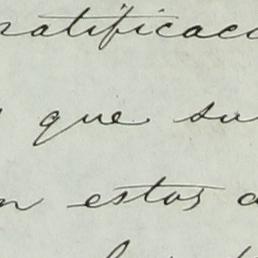 ratificac
que su
n estos a